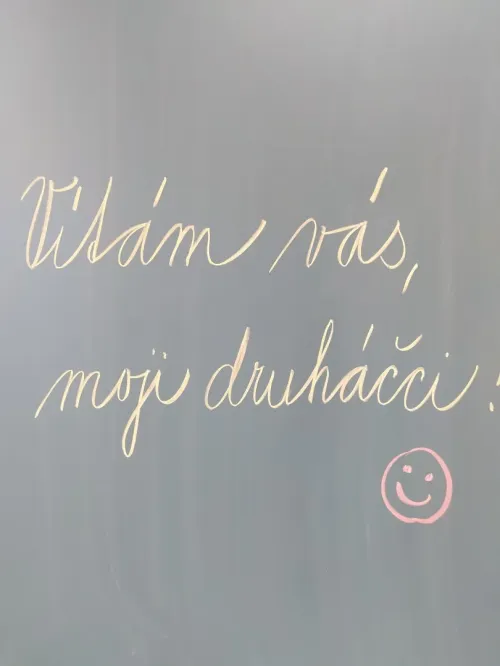 Vítám vás,
moji druháčci!